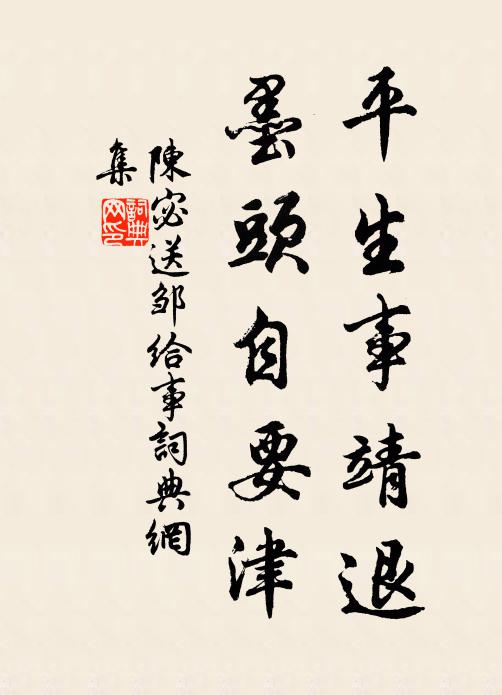 平生事靖退
墨頭自要津
陳宓送邹給事詞典網
集
詞典
网印